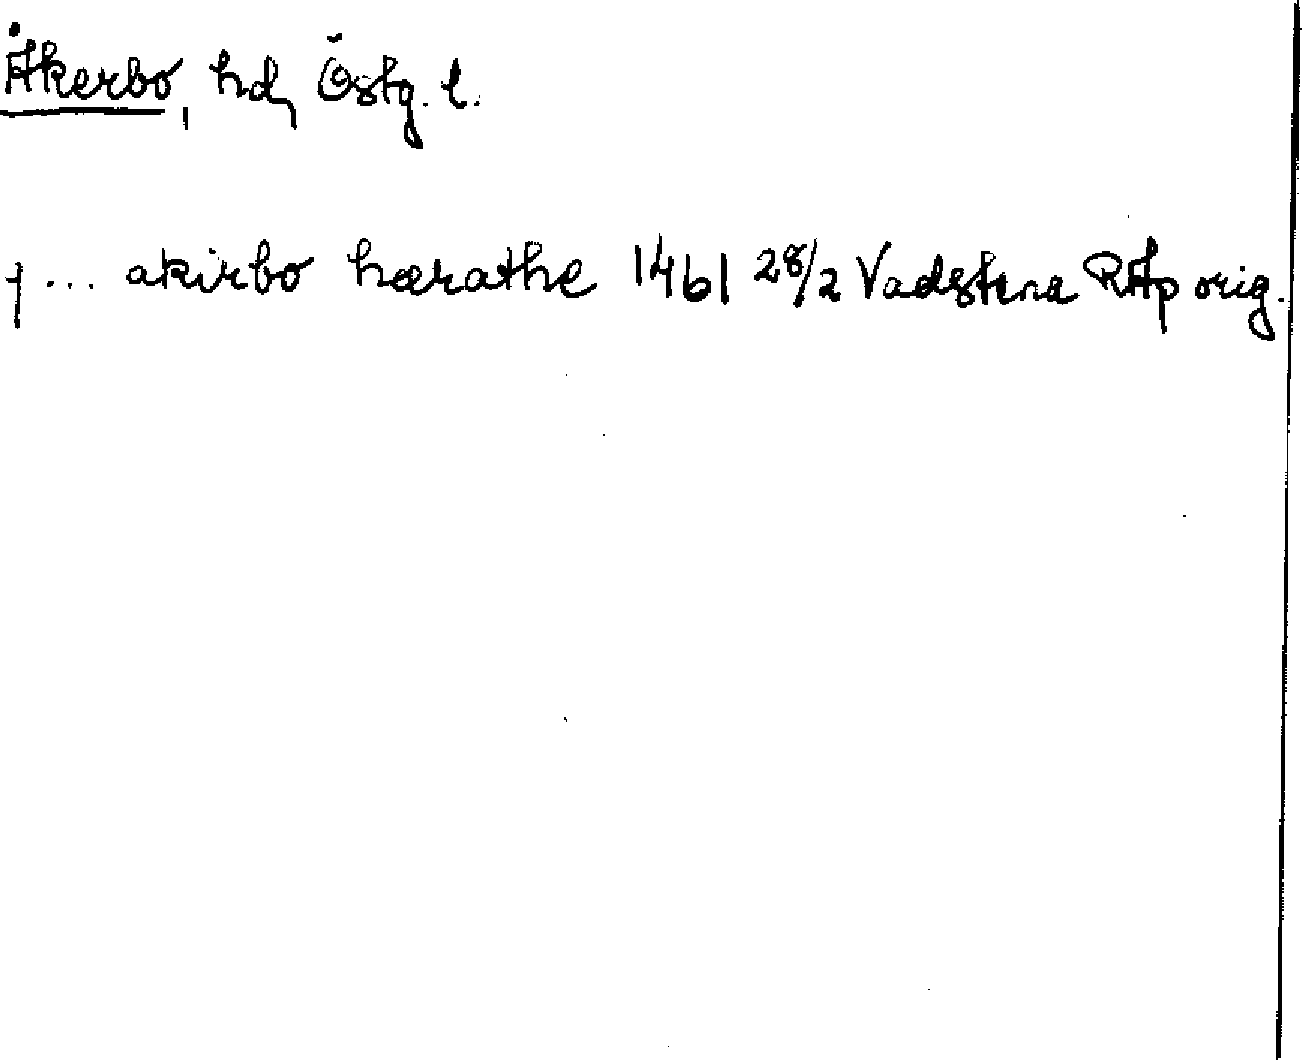 Åkerbo, hd, Östg. l.
j ... akirbo hærathe 1461 28/2 Vadstena RAp orig.